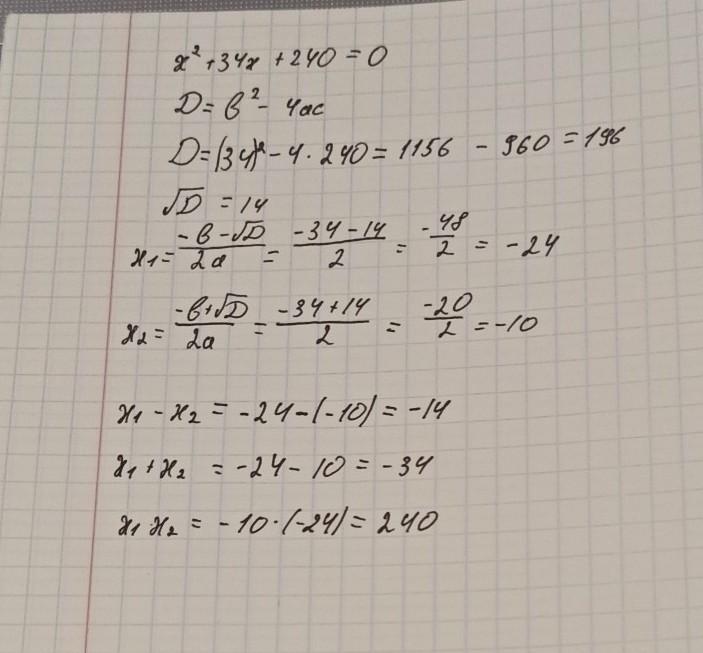 x² + 34x + 240 = 0
D = b² - 4ac
D = (34)² - 4 · 240 = 1156 - 960 = 196
√D = 14
x₁ = (-b - √D)/2a = (-34 - 14)/2 = -48/2 = -24
x₂ = (-b + √D)/2a = (-34 + 14)/2 = -20/2 = -10
x₁ - x₂ = -24 - (-10) = -14
x₁ + x₂ = -24 - 10 = -34
x₁ · x₂ = -10 · (-24) = 240